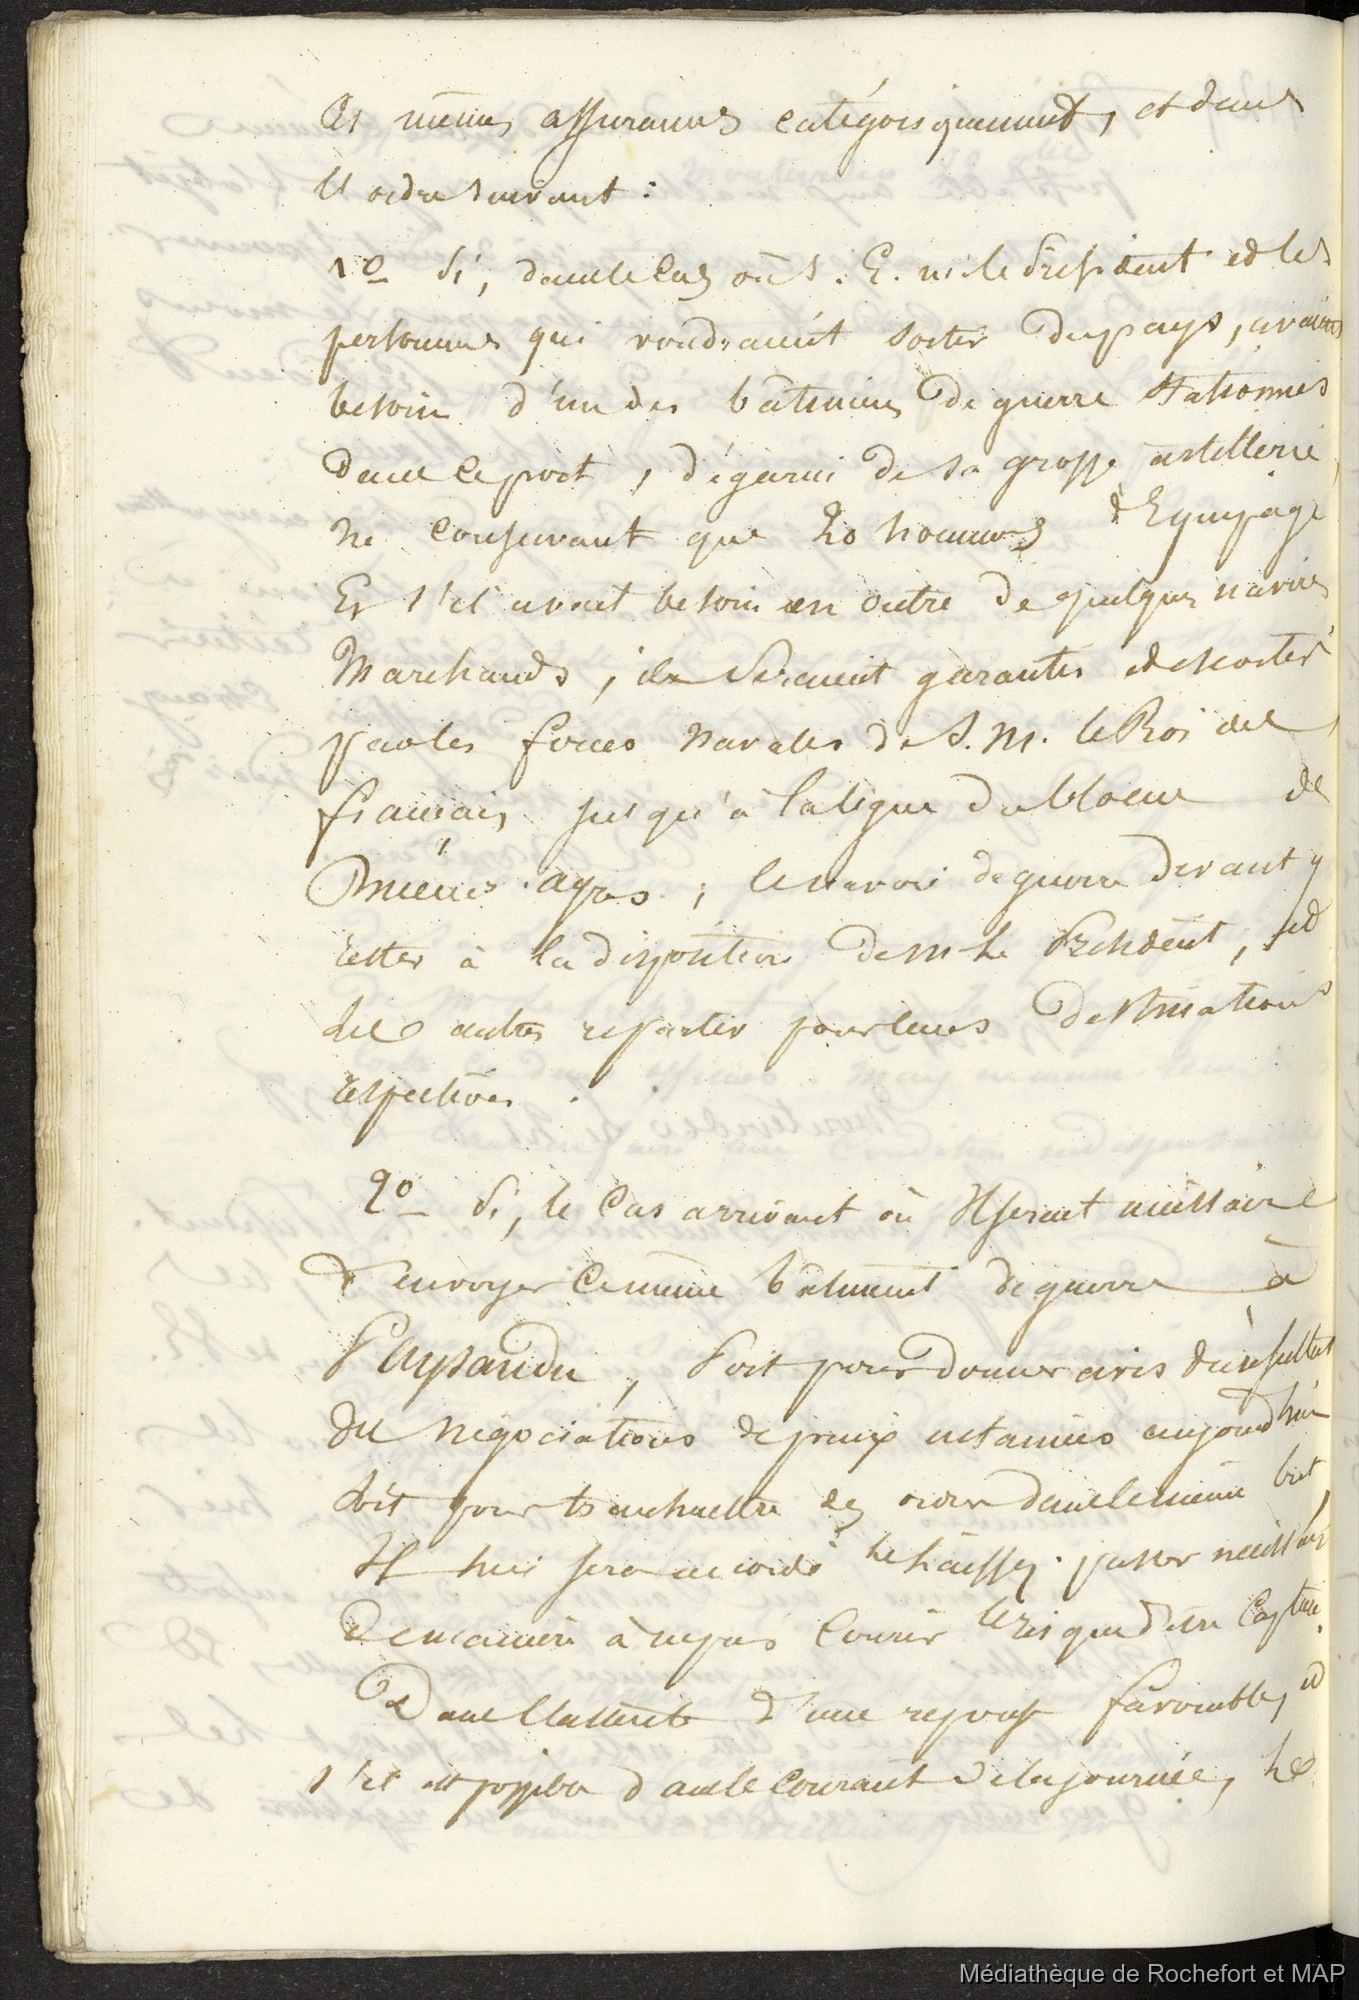 les mêmes assurances catégoriquement, et dans
l'ordre suivant :
1o Si, dans le Cas où S. E. m. le Président et les
personnes qui voudraient sortir du pays, avaient
besoin d'un des bâtimens de guerre stationnés
dans ce port, dégarni de sa grosse artillerie
ne conservant que 20 hommes d'Equipage
Et s'il avait besoin en outre de quelques navires
Marchands, ils seraient garantis et escortés
par les forces navales de S. M. le Roi des
français jusqu'à la ligne du blocus de
Buenos-ayres ; le navire de guerre devant y
rester à la disposition de m. le Président, et
les autres repartir pour leurs destinations
respectives.
2o Si, le Cas arrivant où Il serait nécessaire
d'envoyer ce même bâtiment de guerre à
Paysandu, soit pour donner avis du résultat
des négociations de paix entamées aujourd'hui
soit pour transmettre des ordres dans le même but,
Il lui sera accordé le laissez-passer nécessaire
de manière à ne pas courir le risque d'être capturé.
Dans l'attente d'une réponse favorable, et
s'il est possible dans le courant de la journée, le
Médiathèque de Rochefort et MAP